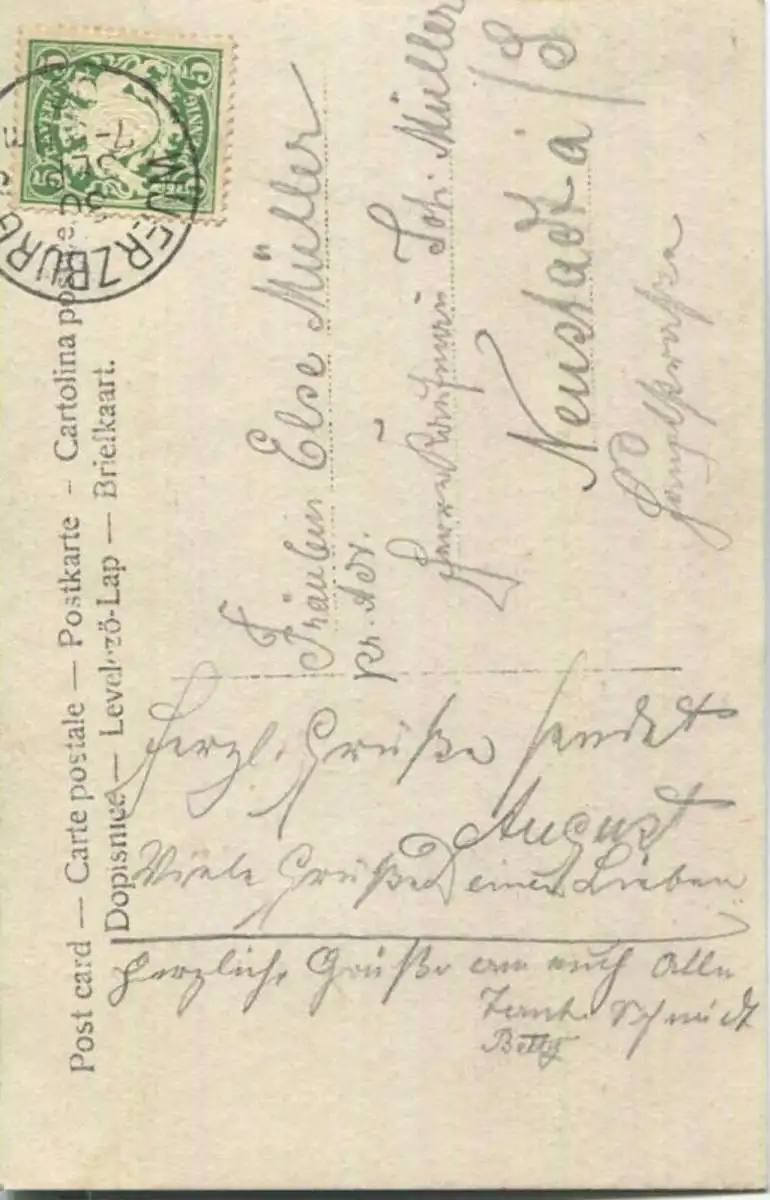 Post card — Carte postale — Postkarte – Cartolina postale
Dopisnice — Levelező-Lap — Briefkaart.
BAYERN
5 5
5 5
WUERZBURG
7-8
Fräulein Else Müller
pr. Adr.
Herrn Kaufmann Joh. Müller
Neustadt a/S
Hauptstraße
Herzl. Grüße sendet
August
Viele Grüße Lieben
Herzliche Grüße an euch Alle
Tante Schmidt
Betty